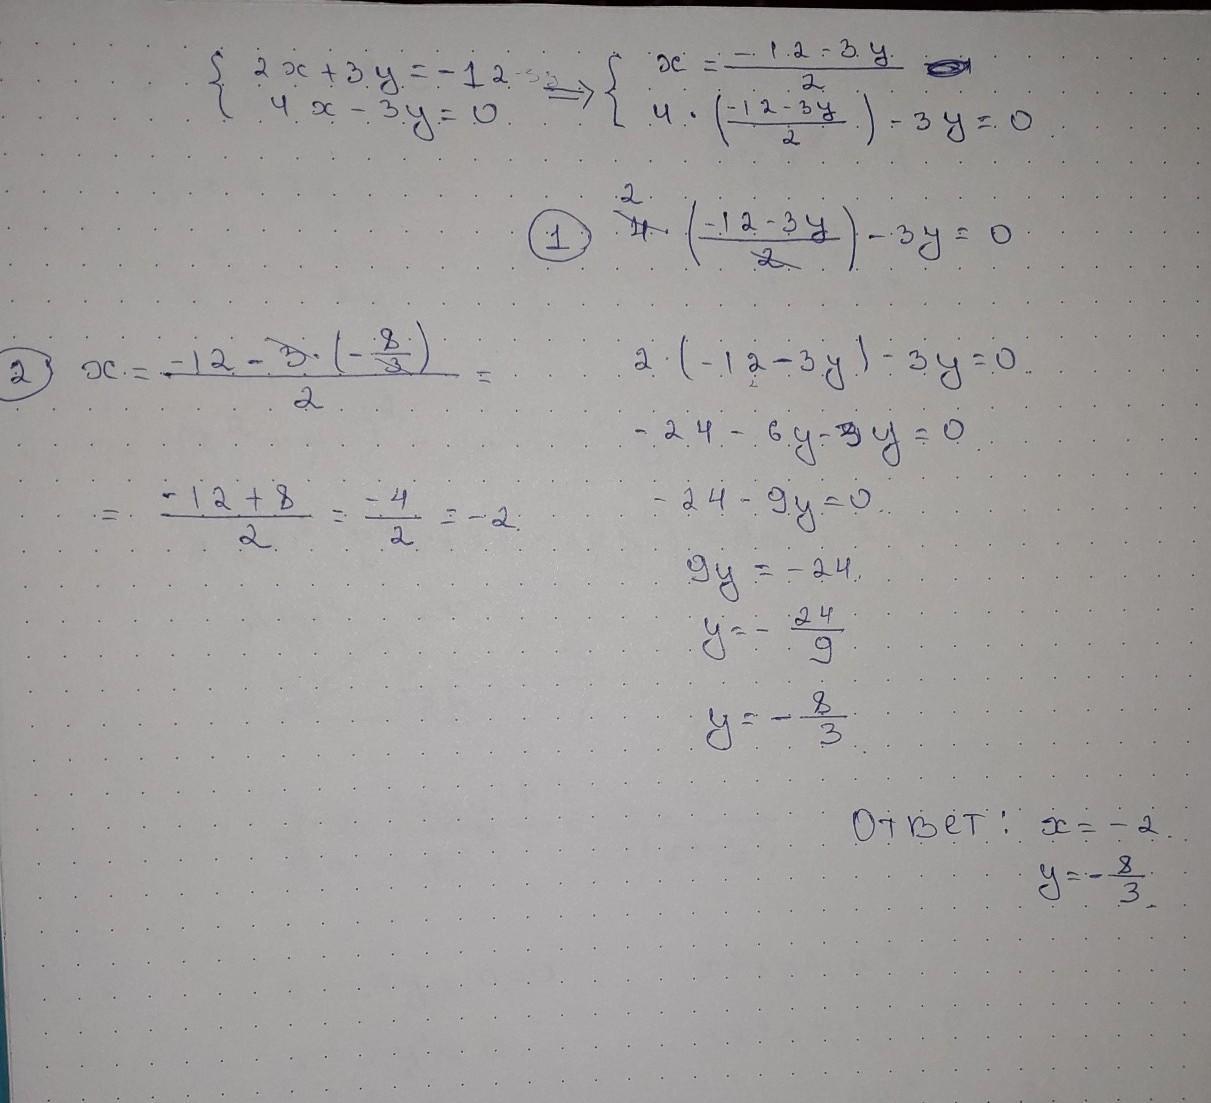 { 2x+3y=-12 ⇒ { x = (-12-3y)/2
{ 4x-3y=0 { 4·((-12-3y)/2)-3y=0
① 4 2 ((-12-3y)/2)-3y=0
2(-12-3y)-3y=0
-24-6y-3y=0
-24-9y=0
9y=-24
y=-24/9
y=-8/3
② x = (-12-3·(-8/3))/2 =
= (-12+8)/2 = -4/2 = -2
Ответ: x=-2.
y=-8/3.